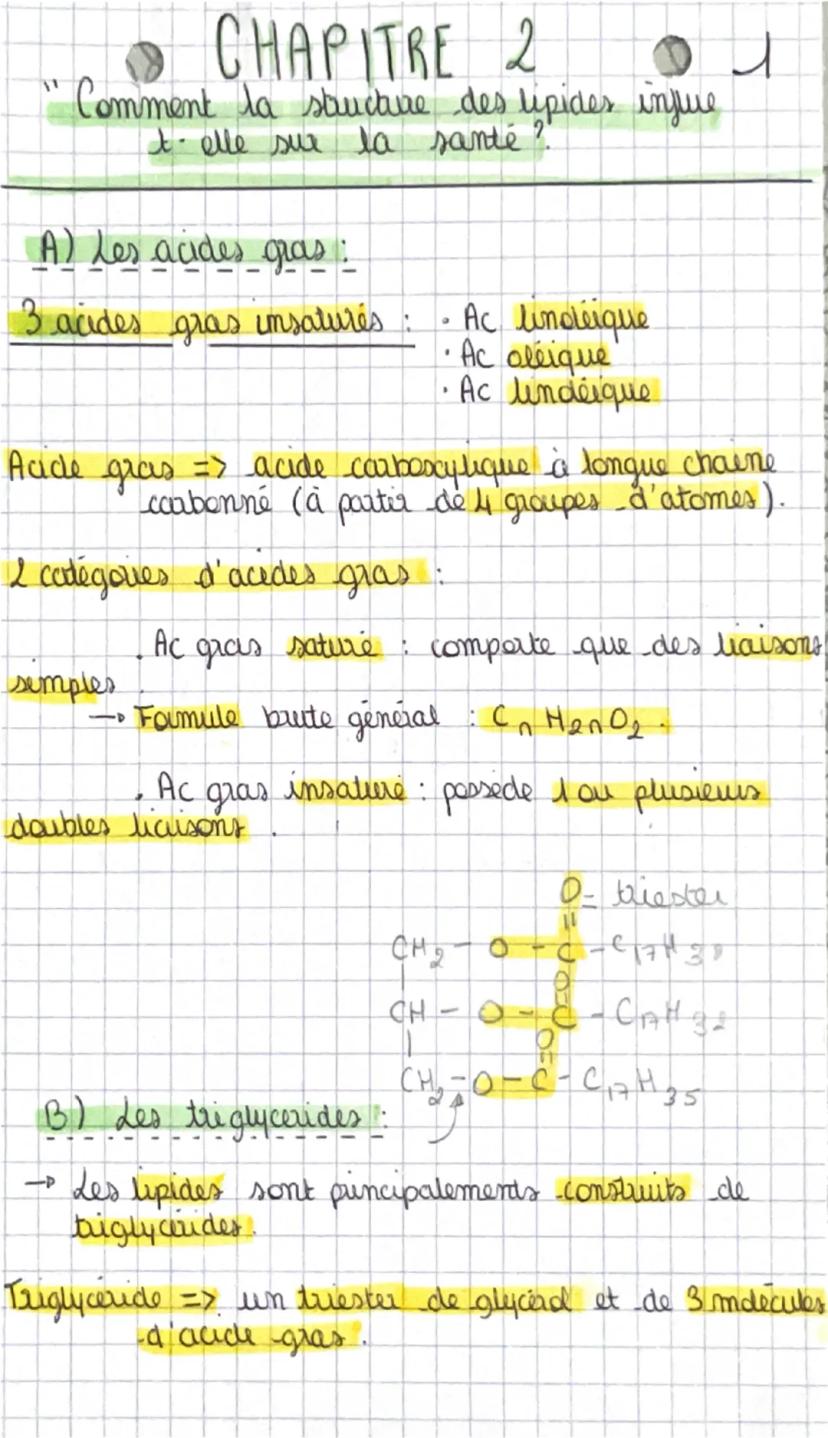 CHAPITRE 2
1
" Comment la structure des lipides influe
t-elle sur la santé ?
A) Les acides gras :
3 acides gras insaturés : • Ac linoléique
• Ac oléique
• Ac linoléique
Acide gras => acide carboxylique à longue chaine
carbonné (à partir de 4 groupes d'atomes).
2 catégories d'acides gras :
. Ac gras saturé : comporte que des liaisons
simples.
→ Formule brute général : CnH2nO2.
. Ac gras insaturé : possède 1 ou plusieurs
doubles liaisons.
O = triester
CH2 - O - C - C17H
O
CH - O - C - C17H
O
CH2 - O - C - C17H35
B) Les triglycerides :
→ Les lipides sont principalements construits de
triglycérides.
Triglycéride => un triester de glycérol et de 3 molécules
d'acide gras.